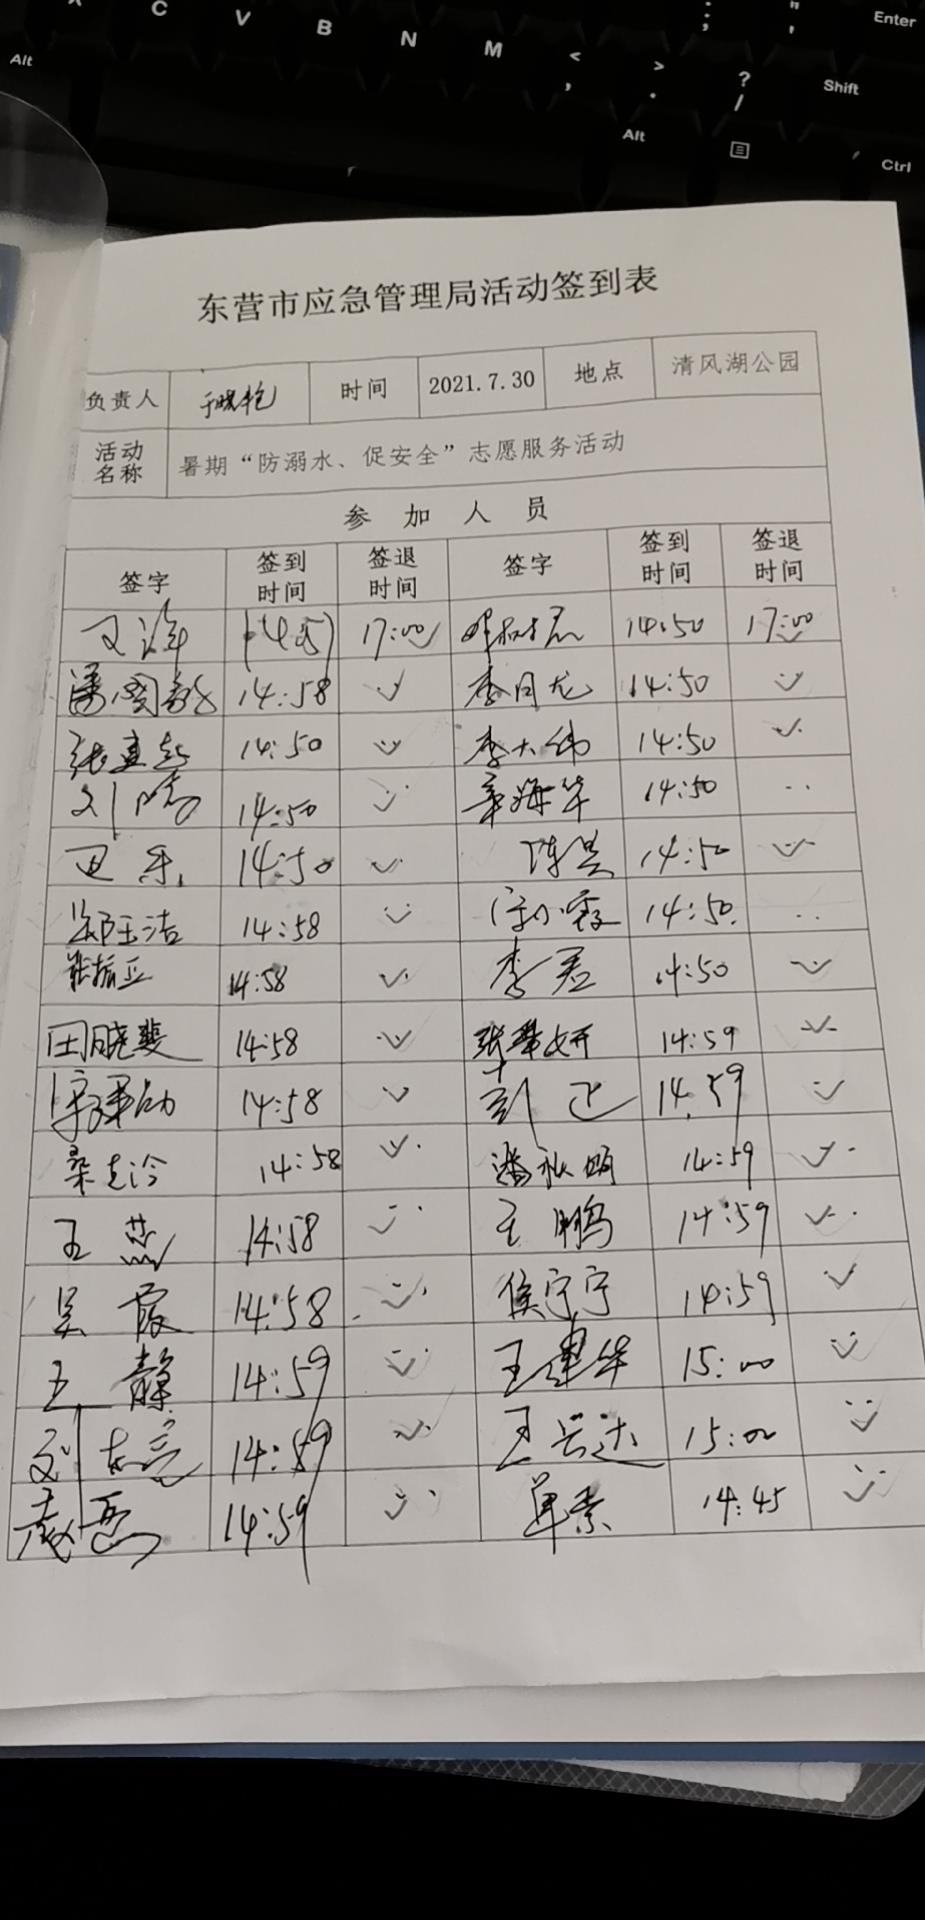 C V B N M < , > . ? / ; : " ' Enter
Alt Shift
Alt Ctrl
东营市应急管理局活动签到表
负责人 于晓艳 时间 2021.7.30 地点 清风湖公园
活动名称 暑期“防溺水、促安全”志愿服务活动
参加人员
签字 签到时间 签退时间 签字 签到时间 签退时间
17:00 14:50 17:00
14:58 李月龙 14:50
14:50 李大伟 14:50
14:50 章海华 14:50
14:50 陈昊 14:50
郑玉洁 14:58 14:50
张振亚 14:58 李君 14:50
田晓斐 14:58 张翠妍 14:59
14:58 彭飞 14:59
桑志冷 14:58 14:59
王燕 14:58 王鹏 14:59
吴霞 14:58 侯宁宁 14:59
王静 14:59 王建华 15:00
刘志亮 14:59 王兴达 15:00
14:59 单素 14:45